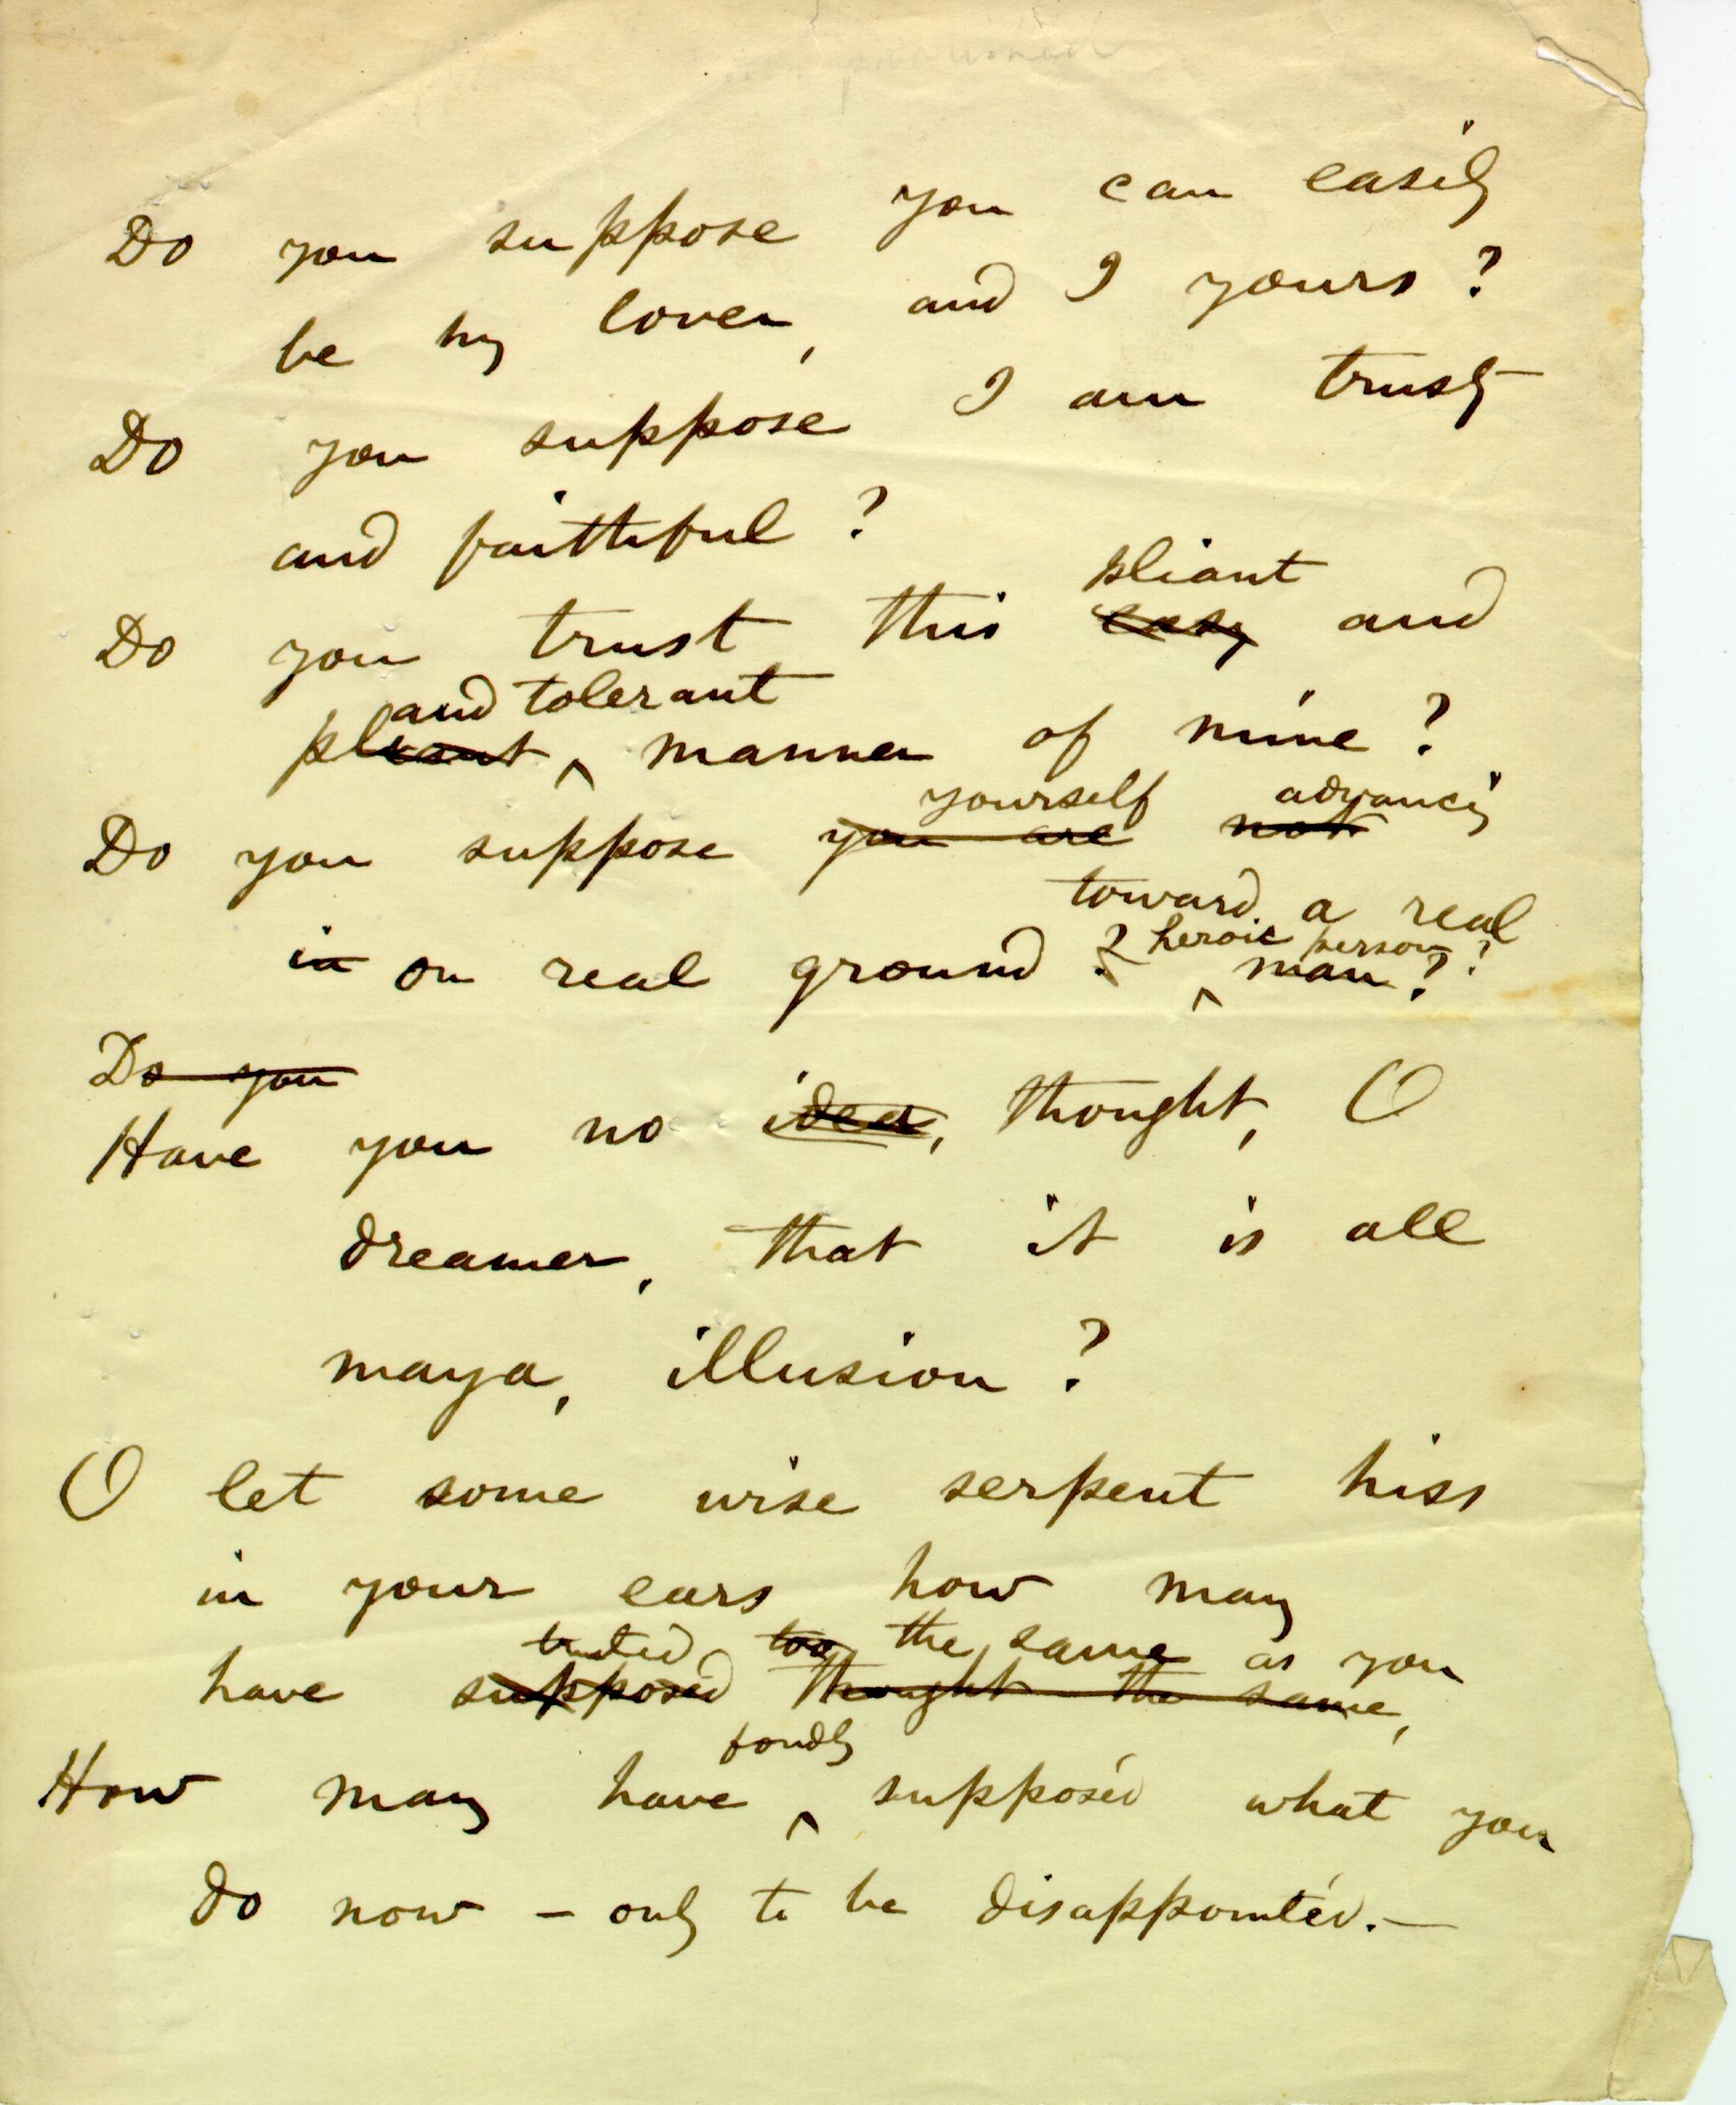 Do you suppose you can easily
be my lover, and I yours?
Do you suppose I am trusty
and faithful?
pliant
Do you trust this easy and
and tolerant
pliant ‸ manner of mine?
yourself advancing
Do you suppose you are not
toward a real
heroic person?
in on real ground? ‸ man?
Do you
Have you no idea, thought, O
dreamer, that it is all
maya, illusion?
O let some wise serpent hiss
in your ears how many
trusted too the same as you
have supposed thought the same,
fondly
How many have ‸ supposed what you
do now – only to be disappointed. —